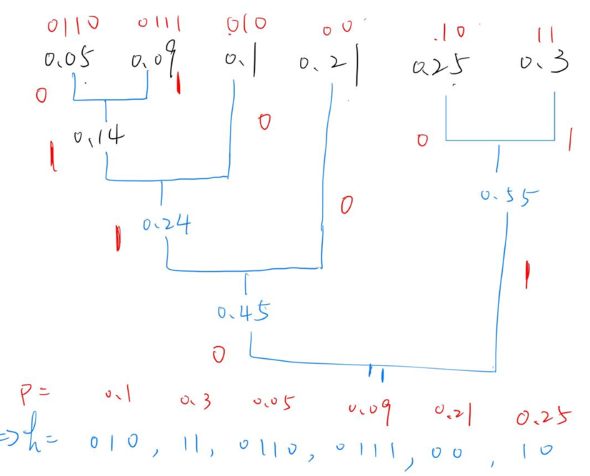 0110 0111 010 00 10 11
0.05 0.09 0.1 0.21 0.25 0.3
0 1
0.14 0 0 1
1
0.55
0.24 0
1
1
0.45
0
1
P= 0.1 0.3 0.05 0.09 0.21 0.25
⇒h= 010, 11, 0110, 0111, 00, 10